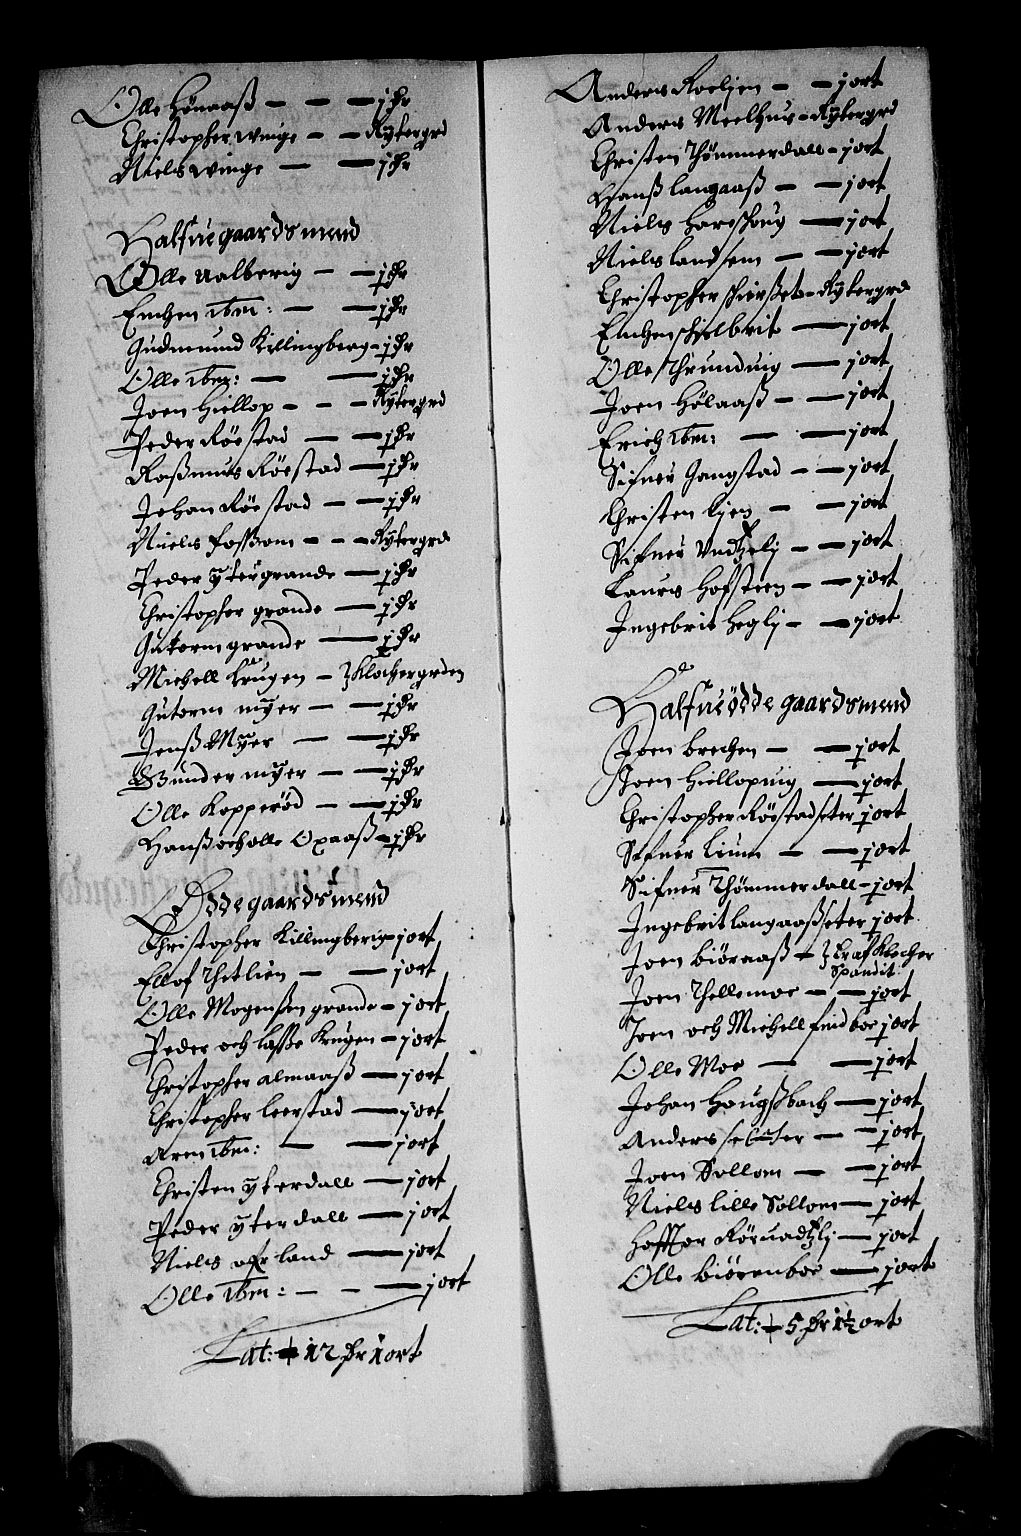 Olle Hønaaß – – – j dr
Christopher winge – – Rytergrd
Niels winge – – j dr
Halfue gaardsmend
Olle ualberig – – j dr
Enchen ibm: – – j dr
Gudmund Killingberg – j dr
Olle ibm: – – j dr
Joen Hiellop – – – Rytergrd
Peder Røestad – – j dr
Raßmus Røestad – j dr
Johan Røestad – – j dr
Niels fossom – – – Rytergrd
Peder ytergrande – j dr
Christopher grande – j dr
Gutorm grande – j dr
Michell Krugen – Klochergrden
Gutorm myer – – j dr
Jenß Myer – – j dr
Gunder myer – – j dr
Olle Kopperød – – j dr
Hanß och olle Oxaaß – j dr
Øddegaardsmend
Christopher Killingberig – j ort
Ellof Thetlien – – j ort
Olle Mogensøn grande – j ort
Peder och lasse Krugen – j ort
Christopher almaaß – j ort
Christopher leerstad – j ort
Aren ibm: – – j ort
Christen yterdall – j ort
Peder yterdall – j ort
Niels land – j ort
Olle ibm: – – – j ort
Lat: 12 dr 1 ort
Anders Roelsen – – j ort
Anders Meelhus – Rytergrd
Christen Thømmerdall – j ort
Hanß langaaß – – j ort
Niels Hareshoug – j ort
Niels landsem – – j ort
Christopher – Rytergrd
Enchen schielbrit – j ort
Olle Thrunduig – j ort
Joen Hølaaß – – j ort
Erich ibm: – – j ort
Sifuer Gangstad – – j ort
Christen lyen – – j ort
Sifuer Undhelj – – j ort
Laurs Hofsteen – – j ort
Ingebrit Heglj – – j ort
Halfueødde gaardsmend
Joen brechen – – j ort
Joen Hiellopuig – j ort
Christopher Røestadseter j ort
Sifuer Lium – – j ort
Sifuer Thømmerdall – j ort
Ingebrit langaaßseter j ort
Joen biøraaß – Er af Klocher
Spandit
Joen Thellemoe – – j ort
Joen och Michell findboe j ort
Olle Moe – – j ort
Johan Hougsbach – j ort
Anders – – j ort
Joen Sollom – – j ort
Niels lille Sollom – j ort
Hafftor Røruadhlj – j ort
Olle biørenboe – j ort
Lat: 5 dr 1½ ort